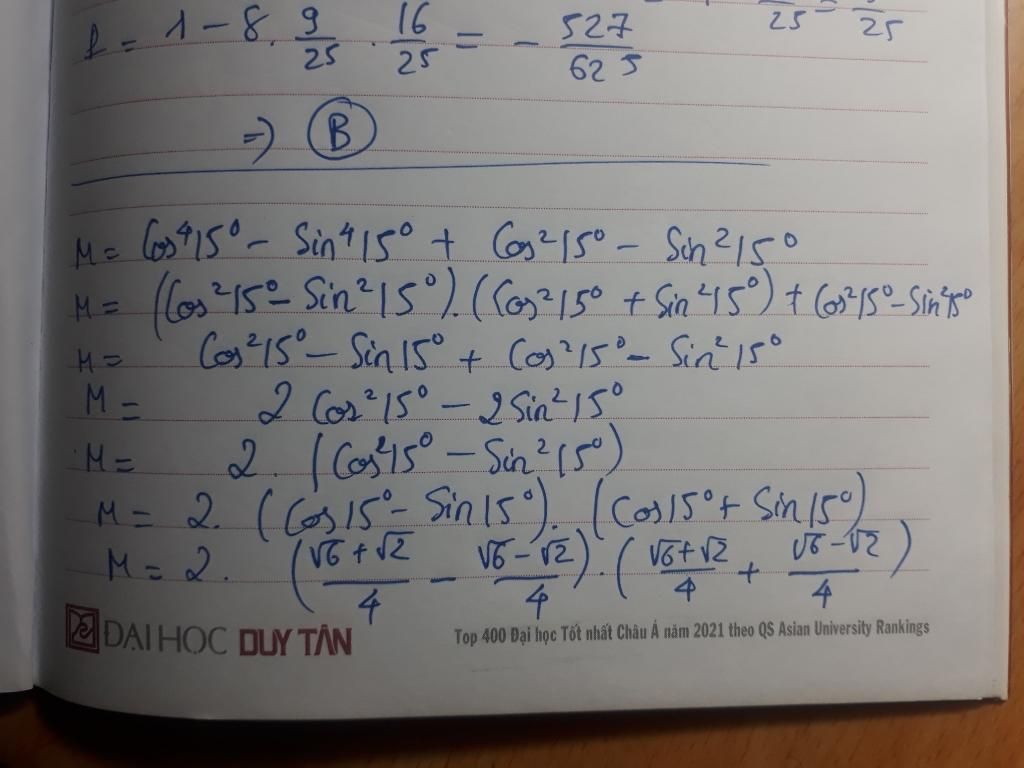 25 = 25
P = 1 - 8 . 9/25 . 16/25 = - 527/625
=> B
M = Cos⁴15⁰ - Sin⁴15⁰ + Cos²15⁰ - Sin²15⁰
M = (Cos²15⁰ - Sin²15⁰) . (Cos²15⁰ + Sin²15⁰) + Cos²15⁰ - Sin²15⁰
M = Cos²15⁰ - Sin15⁰ + Cos²15⁰ - Sin²15⁰
M = 2 Cos²15⁰ - 2Sin²15⁰
M = 2. (Cos²15⁰ - Sin²15⁰)
M = 2. (Cos15⁰ - Sin15⁰). (Cos15⁰ + Sin15⁰)
M = 2. ((√6 + √2)/4 - (√6 - √2)/4) . ((√6 + √2)/4 + (√6 - √2)/4)
ĐẠI HỌC DUY TÂN
Top 400 Đại học Tốt nhất Châu Á năm 2021 theo QS Asian University Rankings